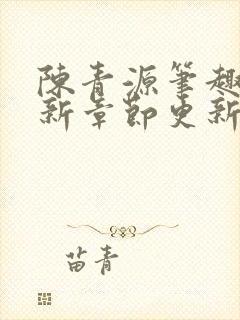 陳青源筆趣
新章節更新
苗青